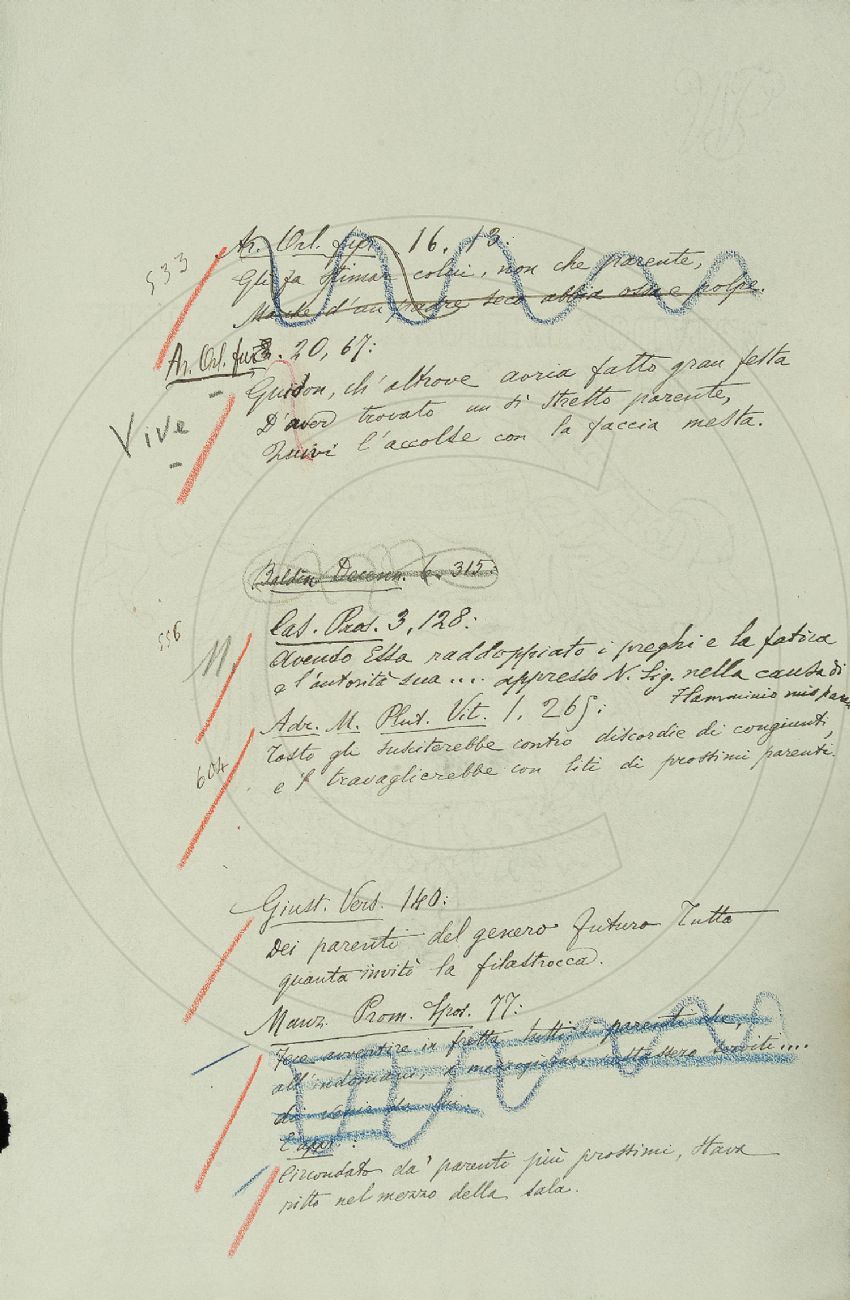 533
Ar. Orl. fur. 16, 13:
Gli fa stimar colui, non che parente,
Ma che d'un padre seco abbia ossa e polpe.
Ar. Orl. fur. 20, 67:
Guidon, ch'altrove avria fatto gran festa
Vive
D'aver trovato un sì stretto parente,
Quivi l'accolse con la faccia mesta.
Baldin. Decenn. 6. 315:
556
Cas. Pros. 3, 128:
N.
Avendo Essa raddoppiato i preghi e la fatica
e l'autorità sua .... appresso N. Sig. nella causa di
Flamminio mio paren
Adr. M. Plut. Vit. 1, 265:
604
Tosto gli susciterebbe contro discordie di congiunti,
e 'l travaglierebbe con liti di prossimi parenti.
Giust. Vers. 140:
Dei parenti del genero futuro Tutta
quanta invitò la filastrocca.
Manz. Prom. Spos. 77:
Fece avvertire in fretta tutti i parenti che,
all'indomani, a mezzogiorno, restassero serviti....
di venir da lui.
E appr.:
Circondato da' parenti più prossimi, stava
ritto nel mezzo della sala.